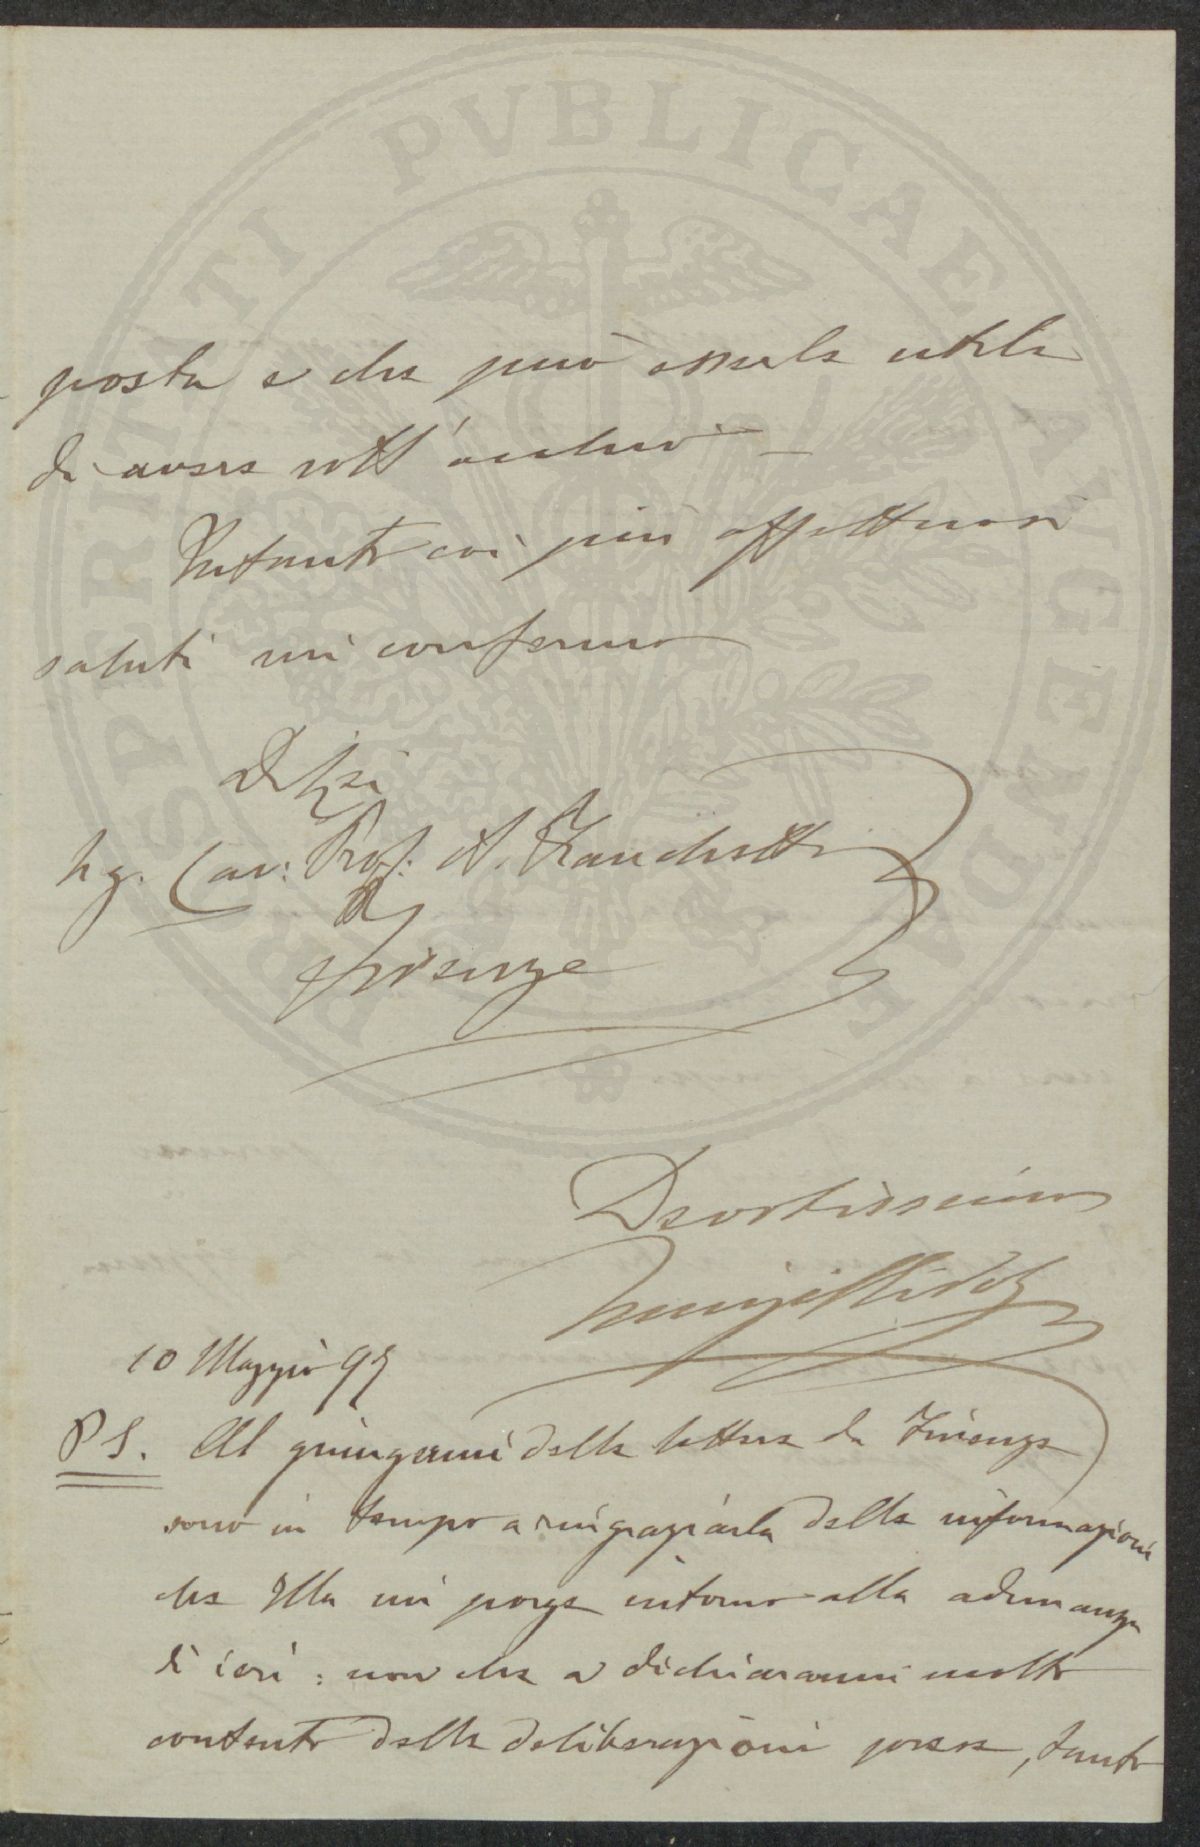 PROSPERITATI PVBLICAE AVGENDAE
posta e che può essele utile
di avere sott'occhio –
Intanto coi più affettuosi
saluti mi confermo
Di Lei
Sig. Cav: Prof. A. Franchetti
Firenze
Devotissimo
10 Maggio 95
PS. Al giungermi della lettera da Firenze
sono in tempo a ringraziarla delle informazioni
che Ella mi porge intorno alla adunanza
di ieri: non che a dichiararmi molto
contento delle deliberazioni prese, tanto